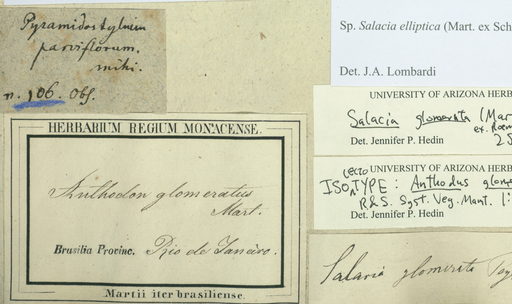 Pyramidostylium
parviflorum.
mihi.
n. 106. Obs.
Sp. Salacia elliptica (Mart. ex Sch
Det. J.A. Lombardi
UNIVERSITY OF ARIZONA HERB
Salacia glomerata (Mar
ex.
Det. Jennifer P. Hedin
HERBARIUM REGIUM MONACENSE.
Anthodon glomeratus
Mart.
Brasilia Provinc. Rio de Janeiro.
Martii iter brasiliense.
UNIVERSITY OF ARIZONA HER
LECTO
ISOTYPE: Anthodus glome
R&S. Syst. Veg. Mant. 1:
Det. Jennifer P. Hedin
Salacia glomerata Pey